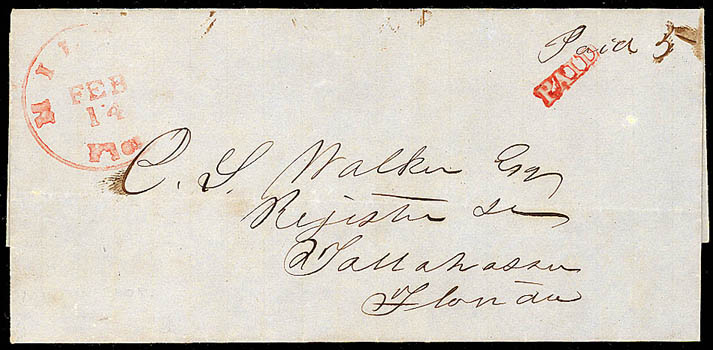 Paid 5
PAID
FEB
14
Flo
C. S. Walker Esq
Register
Tallahassee
Florida